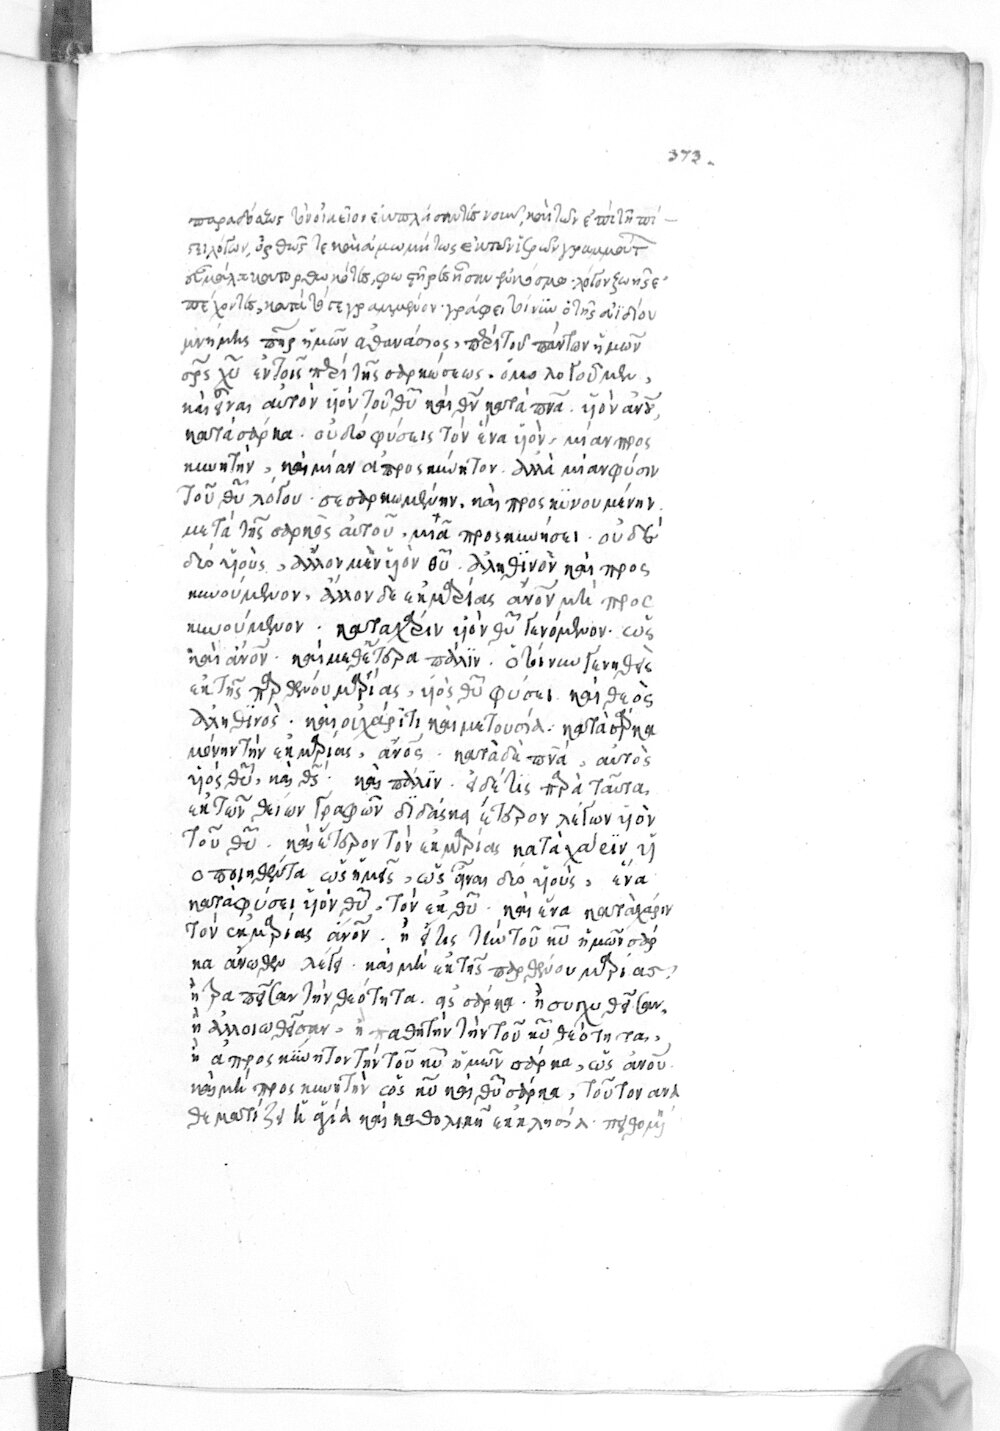 373.
παραδόξως τὸν οἰκεῖον ἐμπλήσαντες νοῦν, καὶ τῶν ἐπὶ τῇ πί-
στει λόγων, ὀρθῶς τε καὶ ἀμωμήτως ἐκ τῶν ἱερῶν γραμμάτ
εὖ μάλα κατορθωκότες, φωστῆρες ἦσαν ἐν κόσμω. λόγον ζωῆς ἐ-
πέχοντες, κατὰ τὸ γεγραμμένον. γράφει τοίνυν ὁ τῆς ἀϊδίου
μνήμης πῆρ ἡμῶν ἀθανάσιος, περὶ τοῦ πάντων ἡμῶν
σρς χυ ἐν τοῖς περὶ τῆς σαρκώσεως. ὁμολογοῦμεν,
καὶ εἶναι αὐτὸν υἱὸν τοῦ θυ καὶ θν κατὰ πνα. υἱὸν ανου,
κατὰ σάρκα. οὐ δύο φύσεις τὸν ἕνα υἱὸν, μίαν προς
κυνητὴν, καὶ μίαν ἀπροσκύνητον. ἀλλὰ μίαν φύσιν
τοῦ θυ λόγου. σεσαρκωμένην. καὶ προσκυνουμένην
μετὰ τῆς σαρκὸς αὐτοῦ, μιᾶ προσκυνήσει. οὐδὲ
δύο υἱοὺς, ἄλλον μὲν υἱὸν θυ. ἀληθινὸν καὶ προς
κυνούμενον, ἄλλον δὲ ἐκ μαρίας ανον μὴ προς
κυνούμενον. κατὰ χάριν υἱὸν θυ γενόμενον. ὡς
καὶ ανον. καὶ μεθ' ἕτερα πάλιν. ὁ τοίνυν γεννηθεὶς
ἐκ τῆς παρθένου μαρίας, υἱὸς θυ φύσει καὶ θεὸς
ἀληθινὸς. καὶ οὐ χάριτι καὶ μετουσία. κατὰ σάρκα
μόνην τὴν ἐκ μαρίας, ανος. κατὰ δὲ πνα, αὐτὸς
υἱός θυ, καὶ θς. καὶ πάλιν. εἰ δέ τις παρὰ ταῦτα
ἐκ τῶν θείων γραφῶν διδάσκει ἕτερον λέγων υἱὸν
τοῦ θυ. καὶ ἕτερον τὸν ἐκ μαρίας κατὰ χάριν υἱ
οποιηθέντα ὡς ἡμεῖς, ὡς εἶναι δύο υἱοὺς, ἕνα
κατὰ φύσει υἱὸν θυ, τὸν ἐκ θυ. καὶ ἕνα κατὰ χάριν
τὸν ἐκ μαρίας ανον. ἢ εἴ τις τὴν τοῦ κυ ἡμῶν σάρ
κα ἄνωθεν λέγει. καὶ μὴ ἐκ τῆς παρθένου μαρίας,
ἢ τραπεῖσαν τὴν θεότητα. εἰς σάρκα. ἢ συγχυθεῖσαν,
ἢ ἀλλοιωθεῖσαν, ἢ παθητὴν τὴν τοῦ κυ θεότητα,
ἢ ἀπροσκύνητον τὴν τοῦ κυ ἡμῶν σάρκα, ὡς ανου.
καὶ μὴ προσκυνητὴν ὡς κυ καὶ θυ σάρκα, τοῦτον ανα
θεματίζει ἡ ἁγία καὶ καθολικὴ ἐκκλησία. πειθομένη